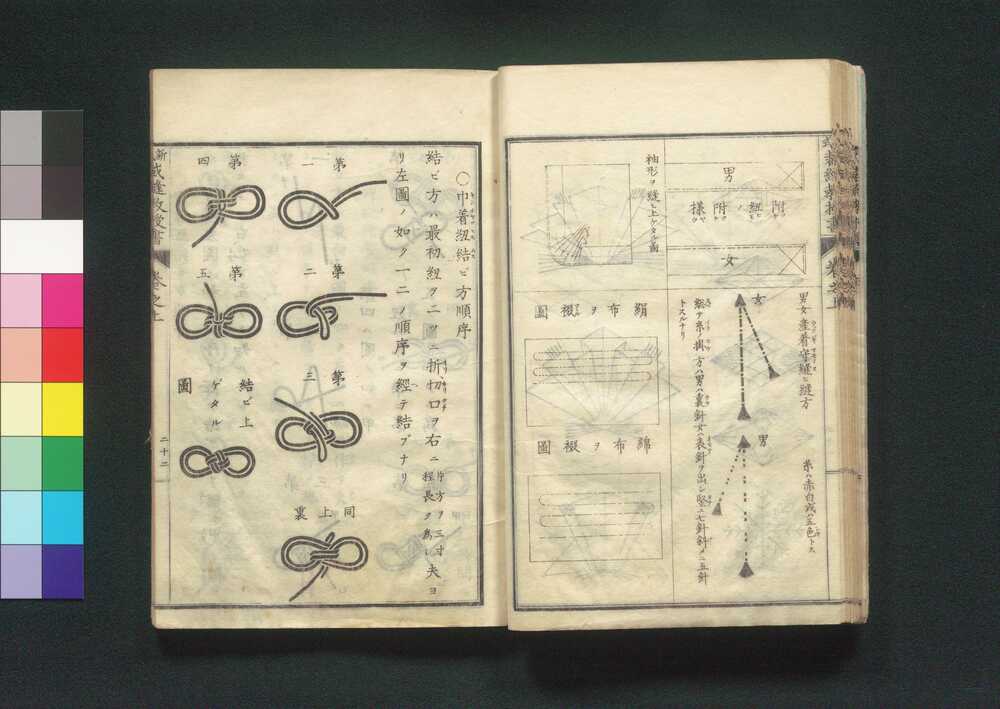 男
附紐ノ附ケ様
女
袖形ヲ縫ヒ上ケタル圖
男女産着守縫ヒ縫方
糸ハ赤白或ハ五色トス
女
男
総テ糸掛方ハ男ハ裏針女ハ表針ヲ出シ竪ニ七針斜メニ五針
トスルナリ
絹布ヲ綴圖
綿布ヲ綴圖
〇巾着紐結ビ方順序
結ビ方ハ最初紐ヲ二ツニ折切口ヲ右ニ片方ヲ三寸程長ク為シ夫ヨ
リ左圖ノ如ク一二ノ順序ヲ經テ結ブナリ
第一
第二
第三
同上裏
第四
第五
結ビ上ゲタル圖
裁縫教授書
卷之上
二十二